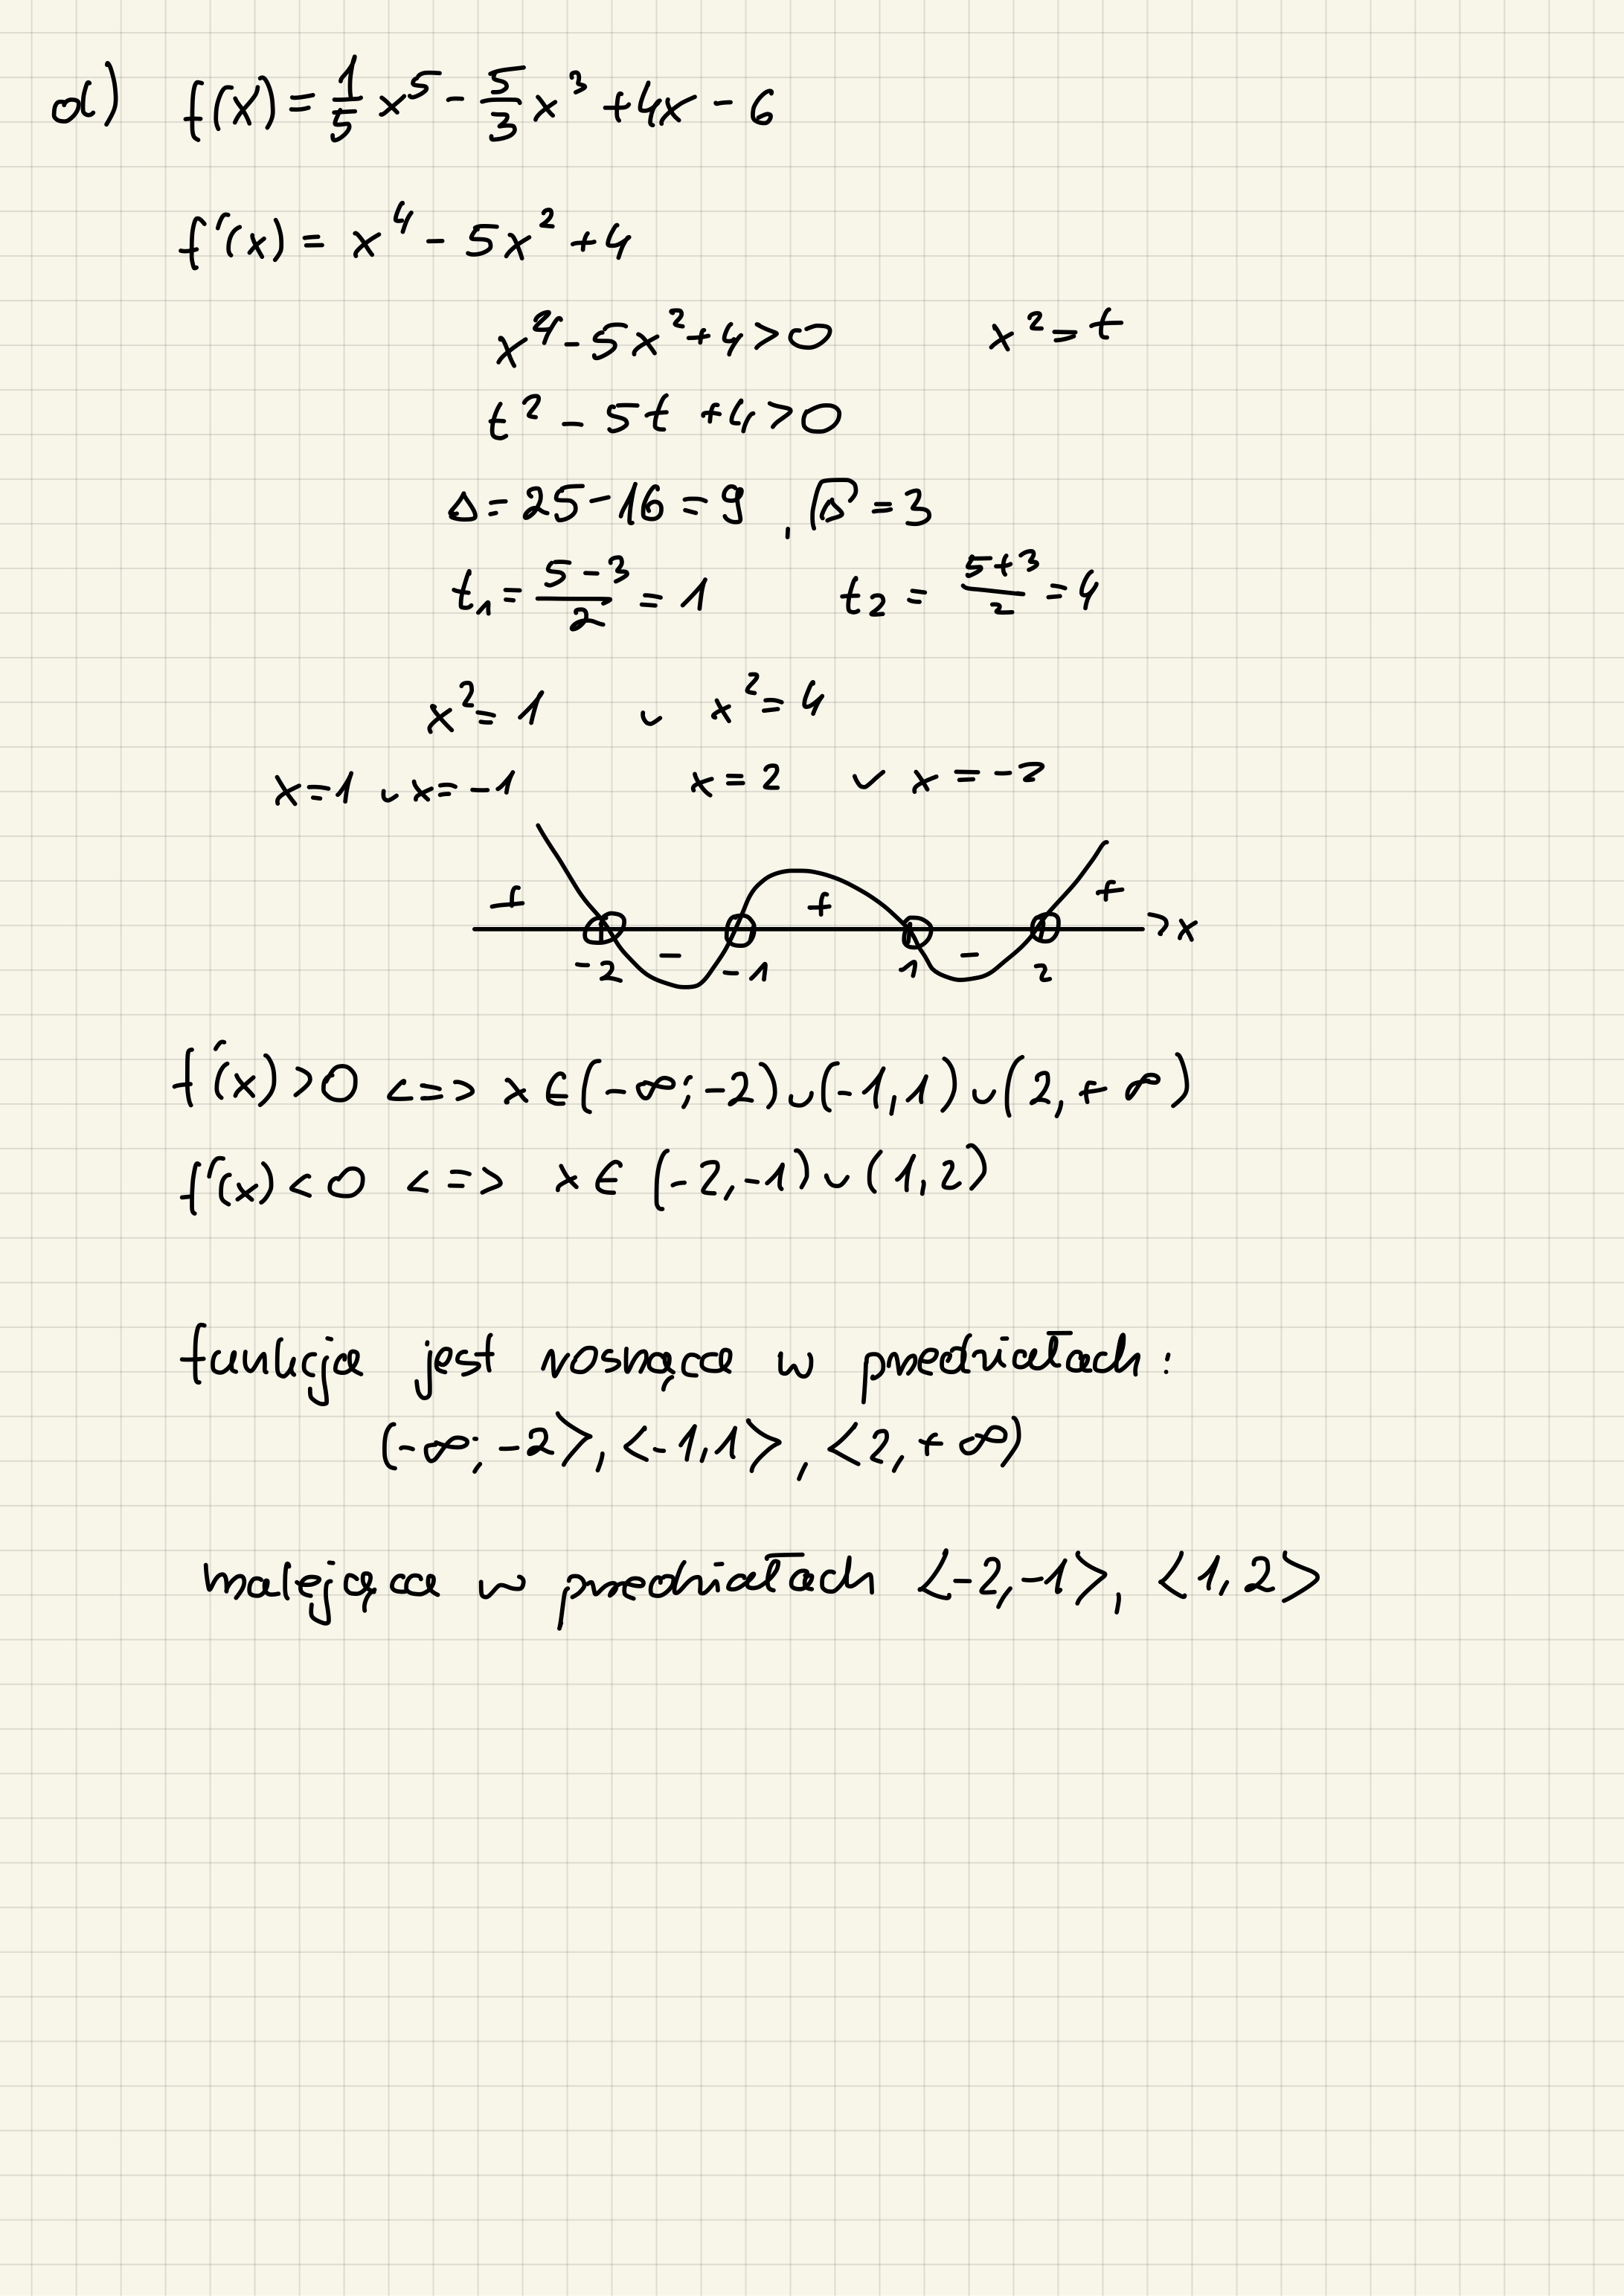 d) f(x) = 1/5 x⁵ - 5/3 x³ + 4x - 6
f'(x) = x⁴ - 5x² + 4
x⁴ - 5x² + 4 > 0 x² = t
t² - 5t + 4 > 0
Δ = 25 - 16 = 9 , √Δ = 3
t₁ = (5 - 3)/2 = 1 t₂ = (5 + 3)/2 = 4
x² = 1 ∨ x² = 4
x = 1 ∨ x = -1 x = 2 ∨ x = -2
+ + +
- - x
-2 -1 1 2
f'(x) > 0 <=> x ∈ (-∞; -2) ∪ (-1, 1) ∪ (2, +∞)
f'(x) < 0 <=> x ∈ (-2, -1) ∪ (1, 2)
funkcja jest rosnąca w przedziałach:
(-∞; -2>, <-1, 1>, <2, +∞)
malejąca w przedziałach <-2, -1>, <1, 2>